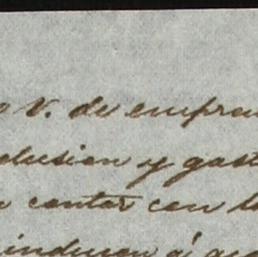 V. de empre
clusion y gast
contar con l
inducen á